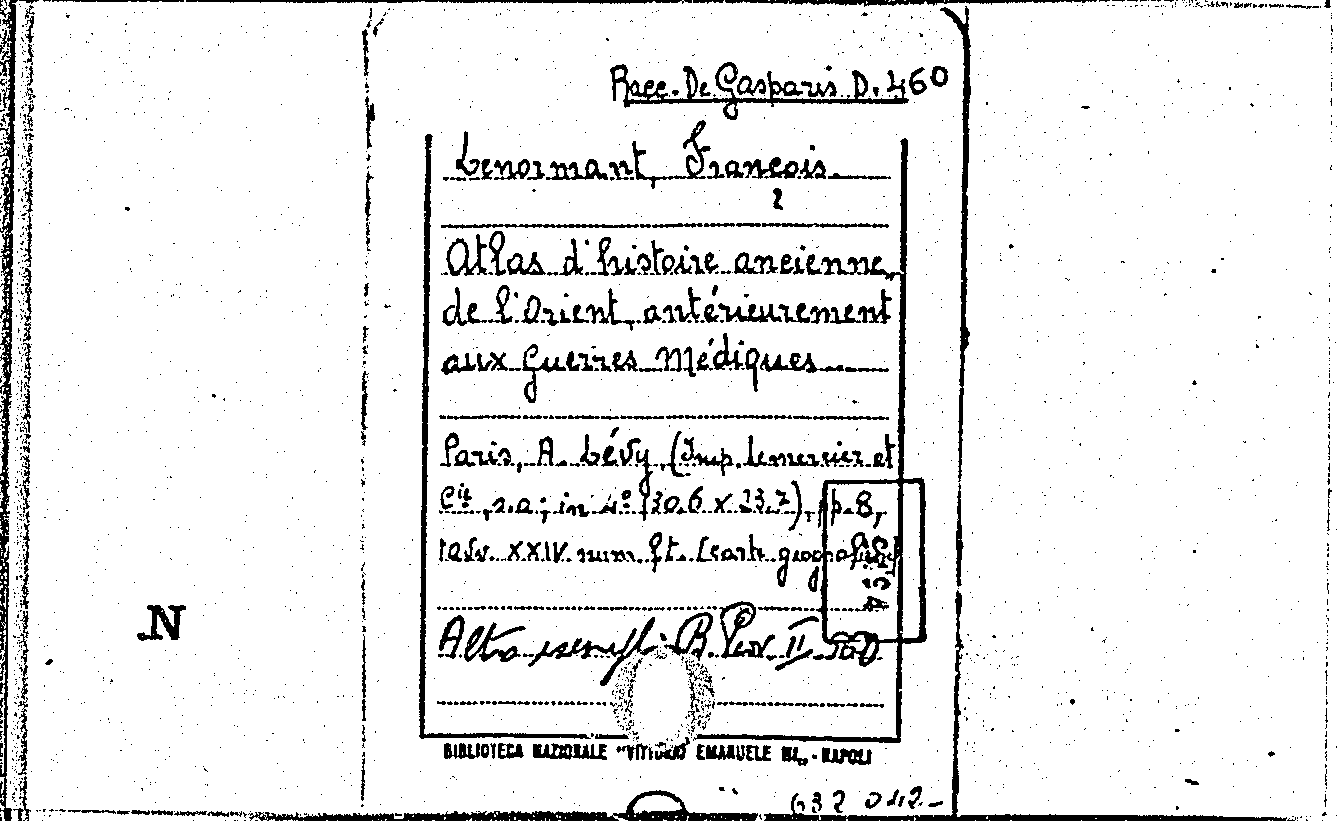 Racc. De Gasparis D. 460
Lenormant, François.
2
Atlas d'histoire ancienne
de l'Orient, antérieurement
aux Guerres Médiques
Paris, A. Lévy, (Imp. Lemercier et
Cie, s.a; in 4° (30,6 x 23,7), pp. 8,
tavv. XXIV num. f.t. (carte geografiche)
Altro esempl:
N
BIBLIOTECA NAZIONALE "VITTORIO EMANUELE III" - NAPOLI
632 042